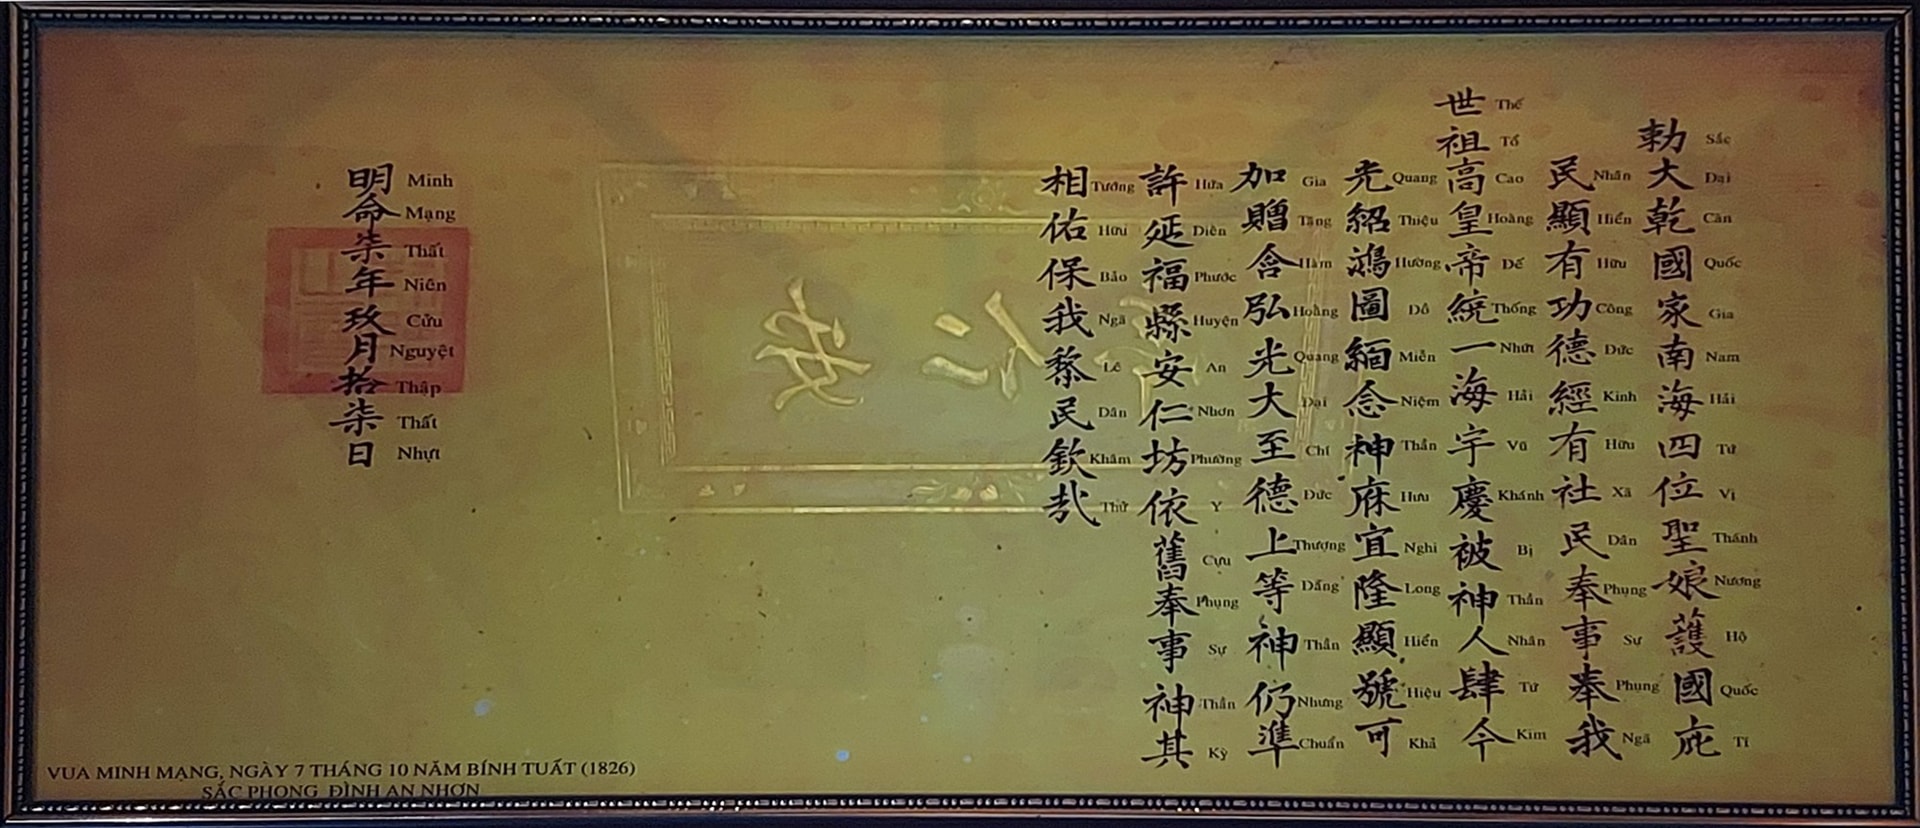 勅大乾國家南海四位聖娘護國庇
Sắc Đại Càn Quốc Gia Nam Hải Tứ Vị Thánh Nương Hộ Quốc Tí
民顯有功德經有社民奉事奉我
Nhân Hiển Hữu Công Đức Kinh Hữu Xã Dân Phụng Sự Phụng Ngã
世祖高皇帝統一海宇慶被神人肆今
Thế Tổ Cao Hoàng Đế Thống Nhứt Hải Vũ Khánh Bị Thần Nhân Tứ Kim
光紹鴻圖緬念神庥宜隆顯號可
Quang Thiệu Hường Đồ Miễn Niệm Thần Hưu Nghi Long Hiển Hiệu Khả
加贈含弘光大至德上等神仍準
Gia Tặng Hàm Hoằng Quang Đại Chí Đức Thượng Đẳng Thần Nhưng Chuẩn
許延福縣安仁坊依舊奉事神其
Hứa Diên Phước Huyện An Nhơn Phường Y Cựu Phụng Sự Thần Kỳ
相佑保我黎民欽哉
Tướng Hữu Bảo Ngã Lê Dân Khâm Thử
明命柒年玖月拾柒日
Minh Mạng Thất Niên Cửu Nguyệt Thập Thất Nhựt
VUA MINH MẠNG, NGÀY 7 THÁNG 10 NĂM BÍNH TUẤT (1826)
SẮC PHONG ĐÌNH AN NHƠN